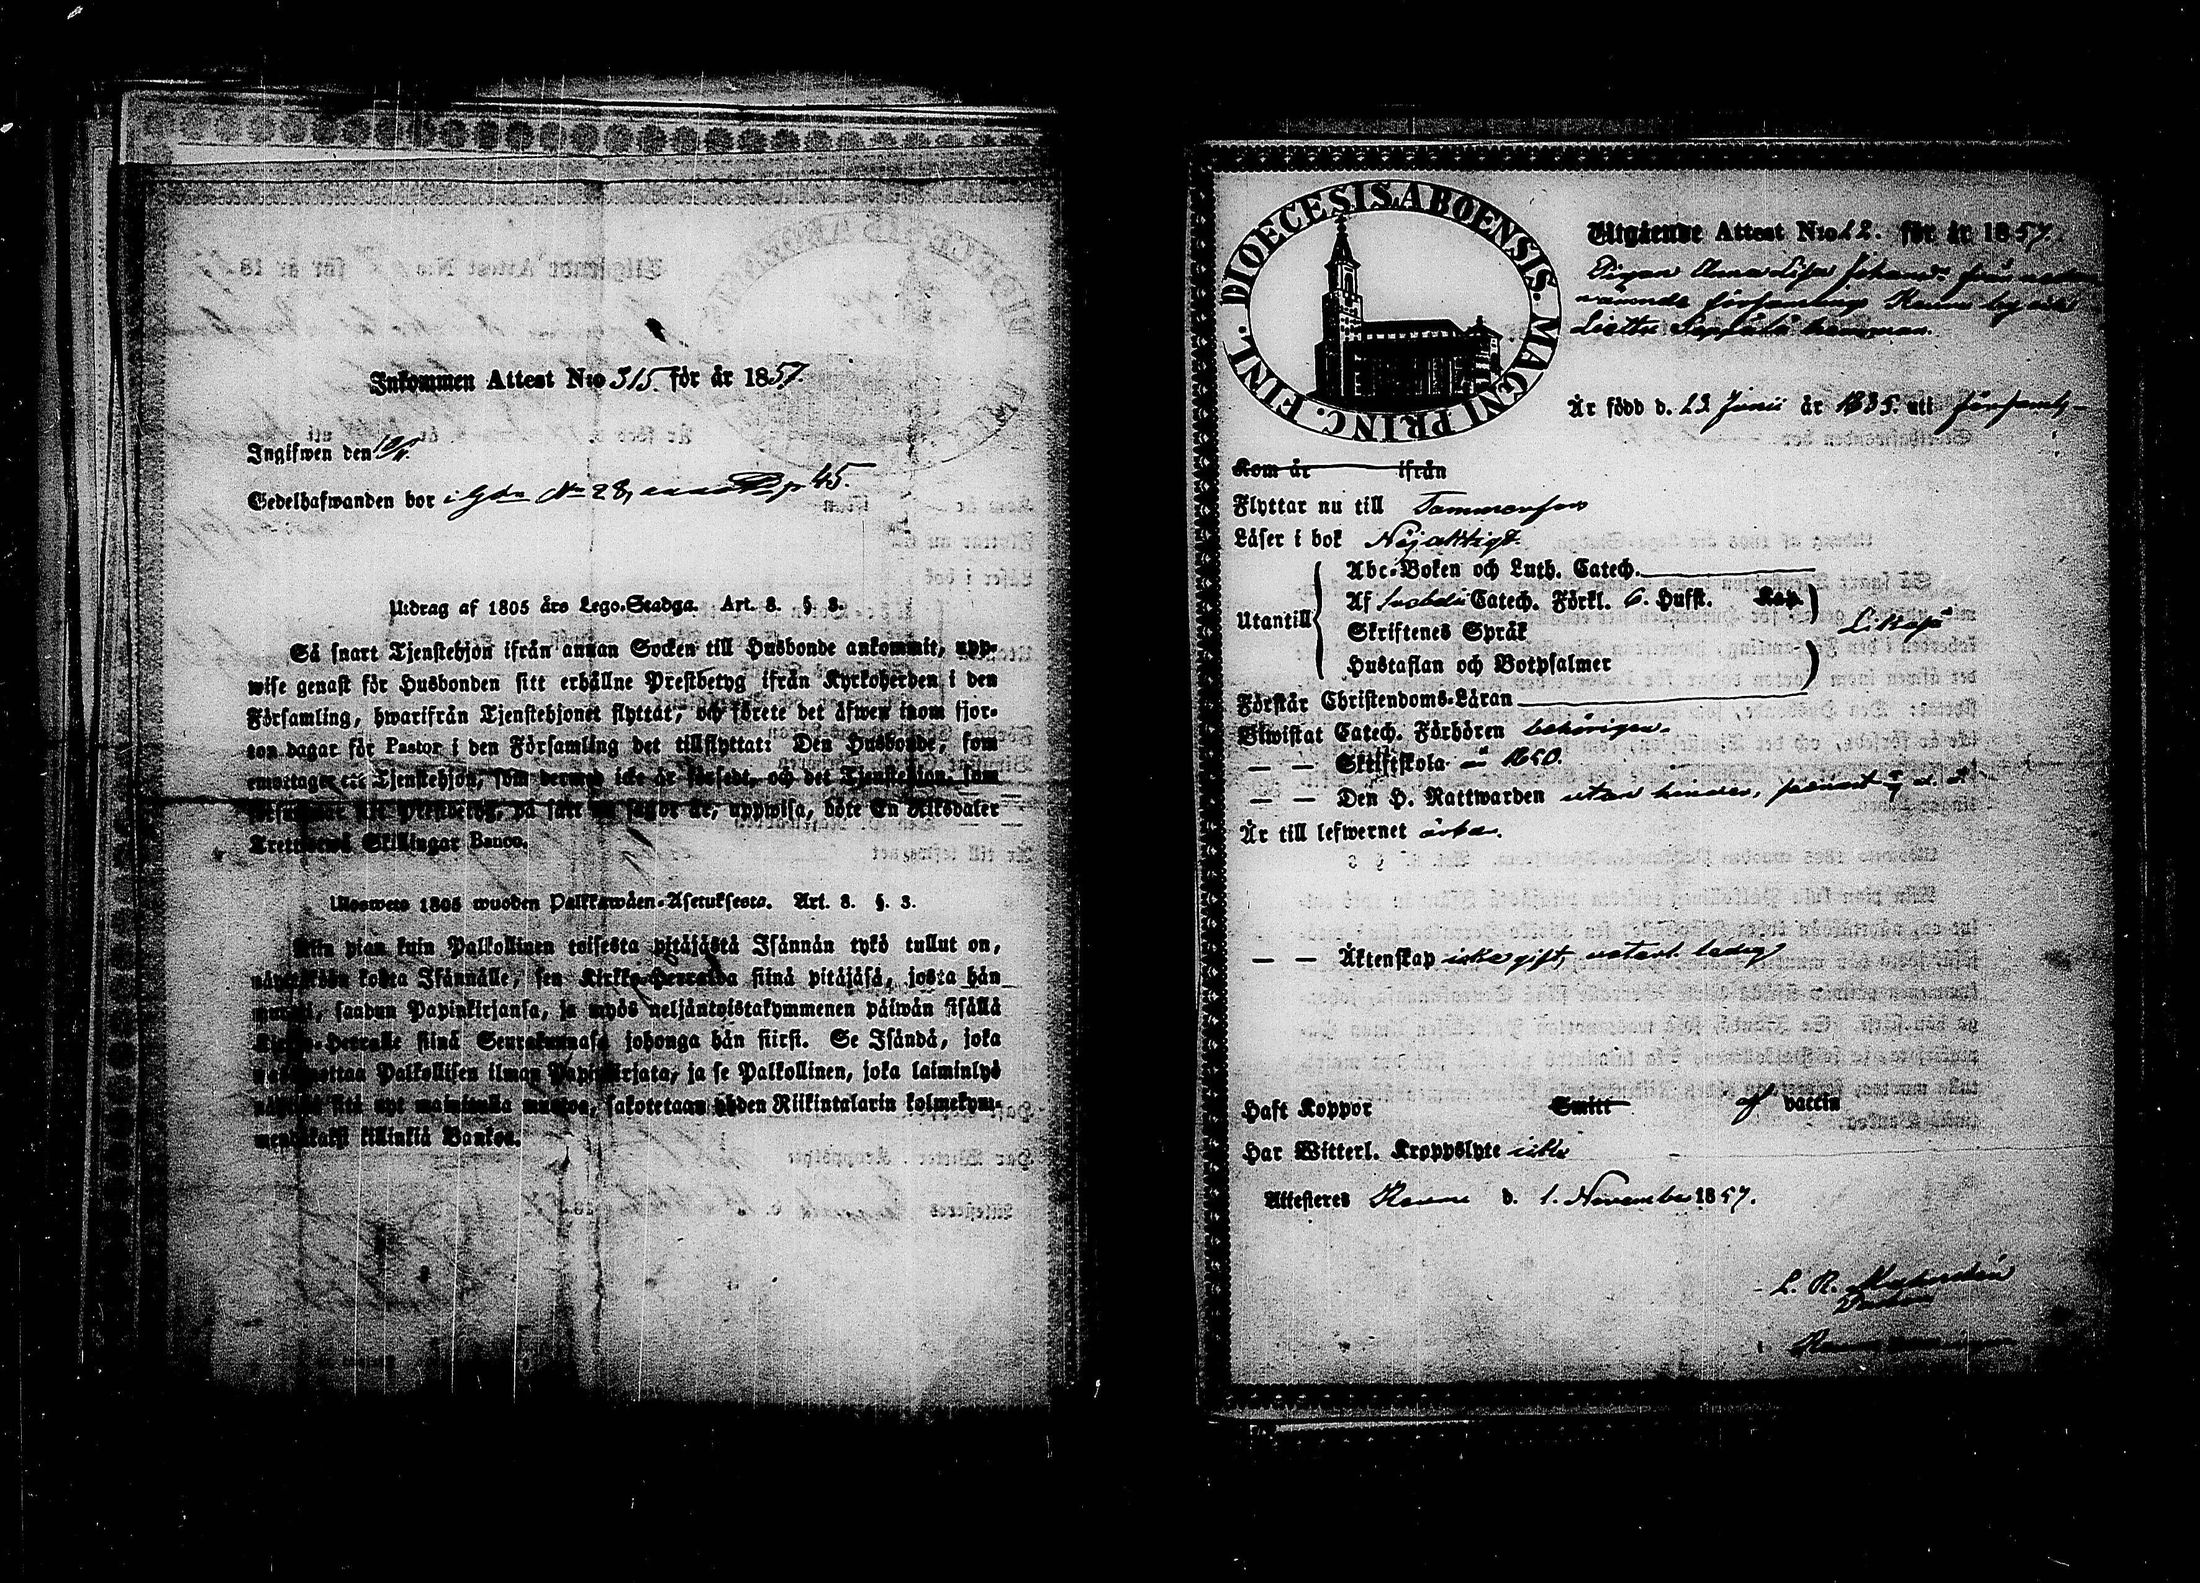 Inkommen Attest N:o 315. för år 1857.
Ingifwen den
Sedelhafwanden bor i Gdn No 28, p. 45.
Utdrag af 1805 års Lego-Stadga. Art. 8. §. 3.
Så snart Tjenstehjon ifrån annan Socken till Husbonde ankommit, upp-
wise genast för Husbonden sitt erhållne Prestbetyg ifrån Kyrkoherden i den
Församling, hwarifrån Tjenstehjonet flyttat, och förete det äfwen inom fjor-
ton dagar för Pastor i den Församling det tillflyttat: Den Husbonde, som
emottager ett Tjenstehjon, som dermed icke är försedt, och det Tjenstehjon, som
försummar sitt Prestbetyg, på sätt nu sagdt är, uppwisa, böte En Riksdaler
Trettiotwå Skillingar Banco.
Ulosweto 1805 wuoden Palkkawäen-Asetuksesta. Art. 8. §. 3.
Niin pian kuin Palkollinen toisesta pitäjästä Isännän tykö tullut on,
näyttäkään kohta Isännälle, sen Kirkko-Herralda siinä pitäjäsä, josta hän
muutti, saadun Papinkirjansa, ja myös neljäntoistakymmenen päiwän sisällä
Kirkko-Herralle siinä Seurakunnasa johonga hän siirsi. Se Isändä, joka
wastaanottaa Palkollisen ilman Papinkirjata, ja se Palkollinen, joka laiminlyö
näyttää sitä nyt mainitulla muotoa, sakotetaan yhden Riikintalarin kolmekym-
mentäkaksi killinkiä Bankoa.
DIOECESIS ABOENSIS. MAGNI PRINC. FINL.
Utgående Attest N:o 12. för år 1857.
Pigan Anna Lisa Johansd. från nedan
nämnde församling Kumo by och
Seppälä hemman.
Är född d. 23 Junii år 1835. uti församl.
Kom år ifrån
Flyttar nu till Tammerfors
Läser i bok Nöjaktigt.
Utantill
Abc-Boken och Luth. Catech.
Af Svebelii Catech. Förkl. 6. Hufst. Kap.
Skriftenes Språk
Hustaflan och Botpsalmer
Likaså
Förstår Christendoms-Läran
Biwistat Catech. Förhören behörigen.
— — Skriftskola år 1850.
— — Den H. Nattwarden utan hinder, senast
Är till lefwernet ärbar.
— — Äktenskap icke gift, veterl. ledig
Haft Koppor Smitt af vaccin
Har Witterl. Kroppslyte icke
Attesteres d. 1. November 1857.
L. R.